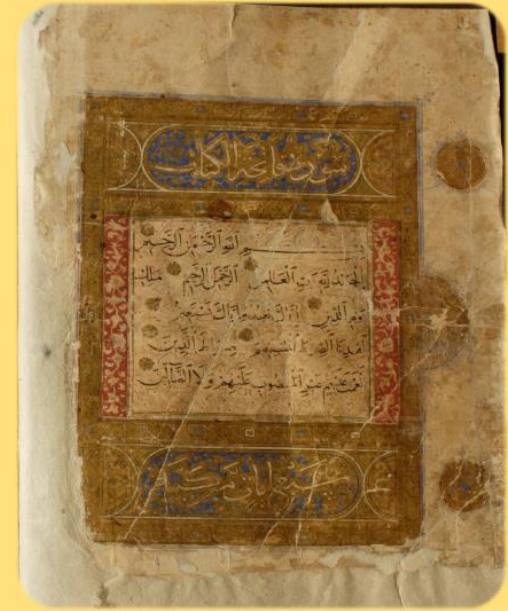 سورة فاتحة الكتاب
بِسْمِ اللهِ الرَّحْمٰنِ الرَّحِيمِ
الْحَمْدُ لِلّهِ رَبِّ الْعَالَمِينَ الرَّحْمٰنِ الرَّحِيمِ مَلِكِ
يَوْمِ الدِّينِ إِيَّاكَ نَعْبُدُ وَإِيَّاكَ نَسْتَعِينُ
اهْدِنَا الصِّرَاطَ الْمُسْتَقِيمَ صِرَاطَ الَّذِينَ
أَنْعَمْتَ عَلَيْهِمْ غَيْرِ الْمَغْضُوبِ عَلَيْهِمْ وَلَا الضَّالِّينَ
سبع ايات مكية